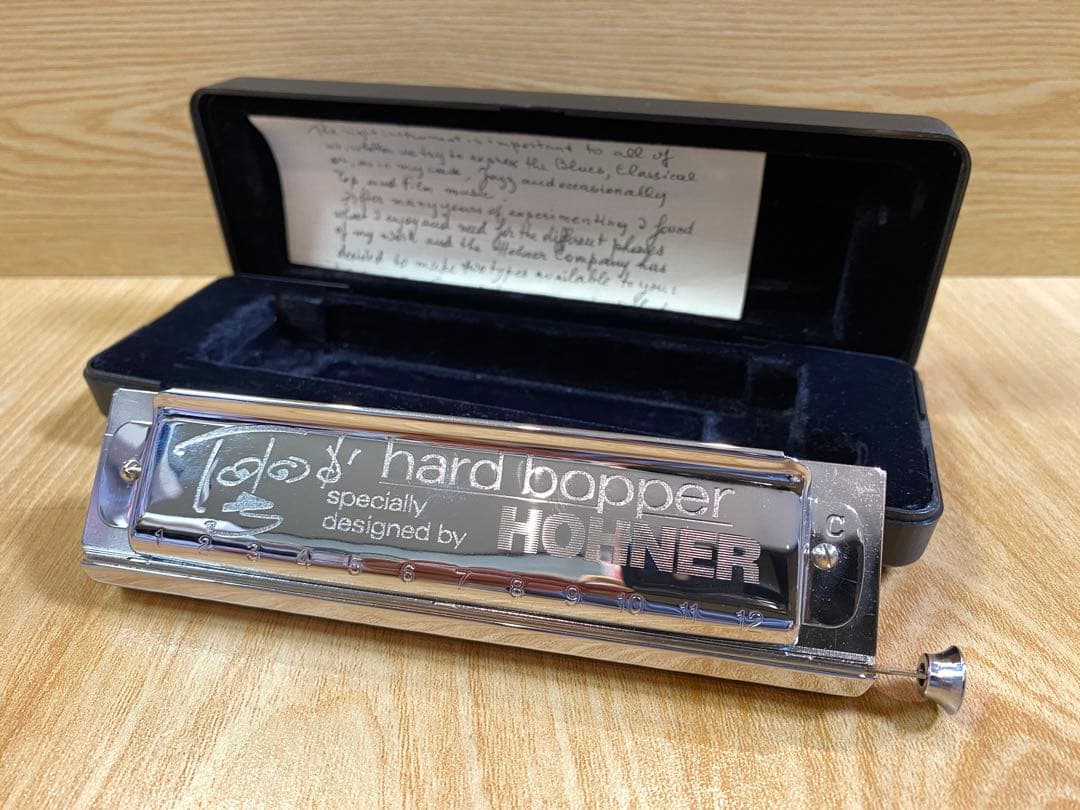 The right instrument is important to all of
us, when we try to express the Blues, Classical
or, as in my case, Jazz and occasionally
Pop and Film music.
After many years of experimenting I found
what I enjoy and need for the different phases
of my work and the Hohner Company has
decided to make two types available to you:
Toots'
hard bopper
specially
designed by
HOHNER
C
1 2 3 4 5 6 7 8 9 10 11 12